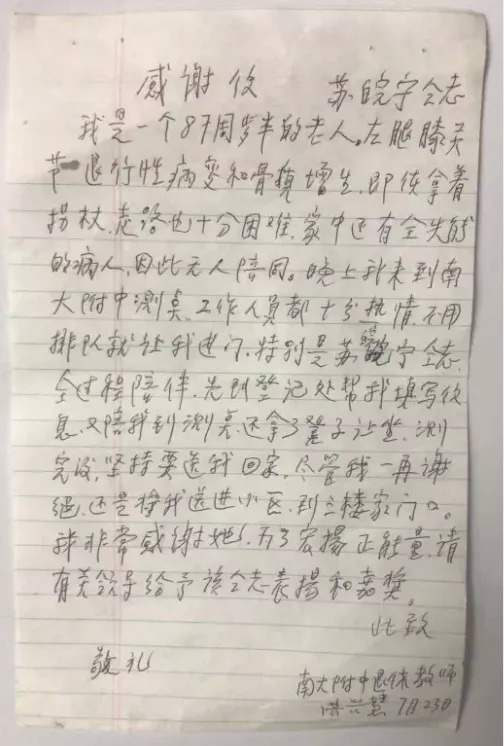 感谢信 苏皖宁仝志
我是一个87周岁半的老人。左腿膝关
节退行性病变和骨質增生,即使拿着
拐杖,走路也十分困难,家中还有全失能
的病人,因此无人陪同。晚上我来到南
大附中测点,工作人员都十分热情,不用
排队就让我进门,特别是苏皖宁仝志,
全过程陪伴,先到登记处帮我填写信
息,又陪我到测点,还拿了凳子让坐,测
完后,坚持要送我回家,尽管我一再谢
绝,还是将我送进小区,到三楼家门口。
我非常感谢她!为了宏揚正能量,请
有关领导给予该仝志表揚和嘉奖。
此致
敬礼
南大附中退休教师
洪兴慧 7月23日